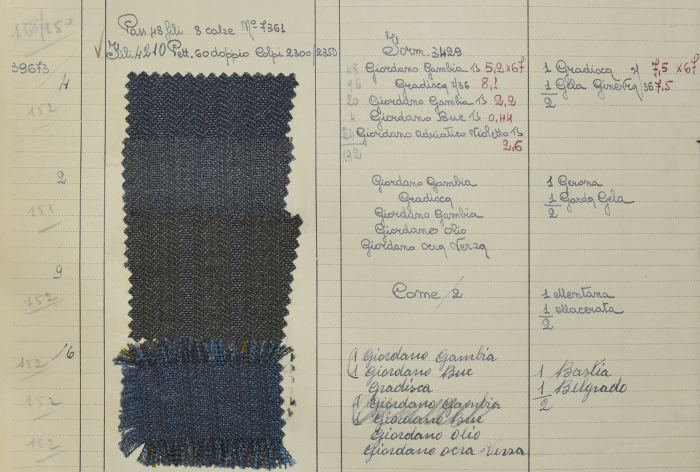 Pass. 48 fili 8 calze Nº 7361
Fili 4210 Pett. 60 doppio Colpi 2300 2350
Form. 3429
39673
/4
48 Giordano Gambia B 5,2x67
96 Gradisca 2/36 8,1
20 Giordano Gambia B 2,2
4 Giordano Bue B 0,44
24 Giordano Adriatico Violetto B
2,6
192
1 Gradisca 7,5 x 67
1 Gela Ginevra 36 7,5
2
152
2
Giordano Gambia
Gradisca
Giordano Gambia
Giordano olio
Giordano ocra Terza
1 Gerona
1 Garda Gela
2
153
9
Come /2
1 Mentana
1 Macerata
2
152
/6
1 Giordano Gambia
1 Giordano Bue
Gradisca
1 Giordano Gambia
1 Giordano Bue
Giordano olio
Giordano ocra Terza
1 Bastia
1 Belgrado
2
152
152
152